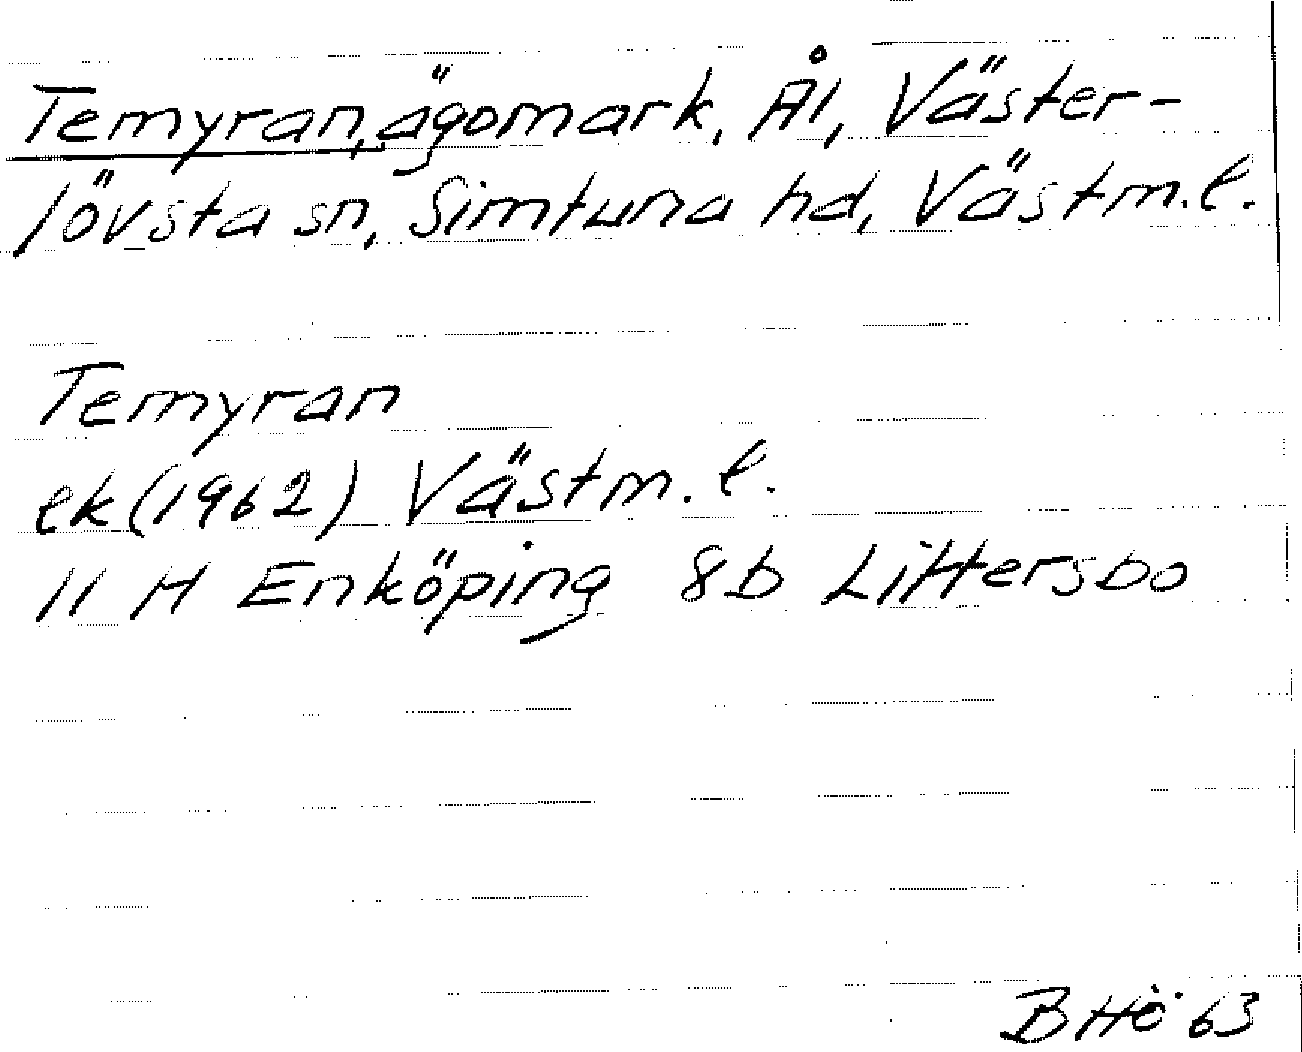 Temyran, ägomark, Ål, Väster-
lövsta sn, Simtuna hd, Västm.l.
Temyran
ek (1962) Västm.l.
11 H Enköping 8b Littersbo
BHö 63